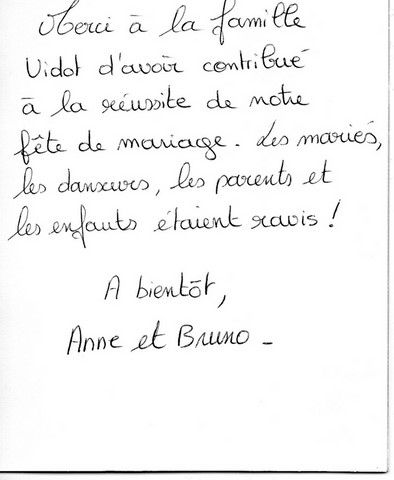 Merci à la famille
Vidot d'avoir contribué
à la réussite de notre
fête de mariage. Les mariés,
les danseurs, les parents et
les enfants étaient ravis !
A bientôt,
Anne et Bruno -